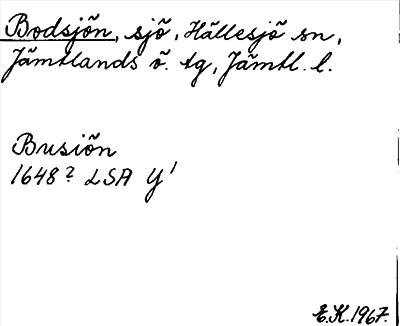 Bodsjön, sjö, Hällesjö sn,
Jämtlands ö. tg, Jämtl. l.
Busiön
1648? LSA Y¹
E.K. 1967.